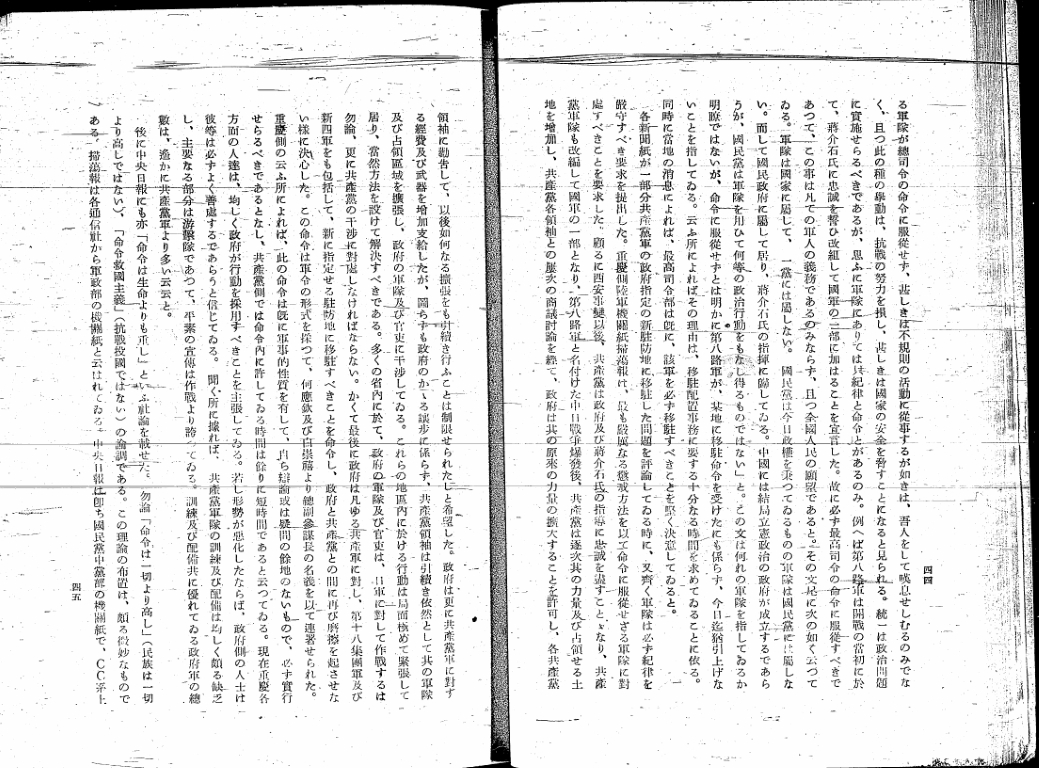 る軍隊が總司令の命令に服從せず、甚しきは不規則の活動に從事するが如きは、吾人をして嘆息せしむるのみでな
く、且つ此の種の擧動は、抗戰の努力を損し、甚しきは國家の安全を脅すことになると見られる。統一は政治問題
に實施せらるべきであるが、思ふに軍隊にありては只紀律と命令とがあるのみ。例へば第八路軍は開戰の當初に於
て、蔣介石氏に忠誠を誓ひ改組して國軍の一部に加はることを宣言した。故に必ず最高司令の命令に服從すべきで
あつて、この事は凡ての軍人の義務であるのみならず、且つ全國人民の願望であると。その文尾に次の如く云つて
ゐる。軍隊は國家に屬して、一黨には屬しない。國民黨は今日政權を秉つてゐるものの軍隊は國民黨には屬しな
い。而して國民政府に屬して居り、蔣介石氏の指揮に歸してゐる。中國には結局立憲政治の政府が成立するであら
うが、國民黨は軍隊を用ひて何等の政治行動をもなし得るものではない」と。この文は何れの軍隊を指してゐるか
明瞭ではないが、命令に服從せずとは明かに第八路軍が、某地に移駐命令を受けたにも係らず、今日迄猶引上げな
いことを指してゐる。云ふ所によればその理由は、移駐配置事務に要する十分なる時間を求めてゐることに依る。
同時に當地の消息によれば、最高司令部は旣に、該軍を必ず移駐すべきことを堅く決意してゐると。
各新聞紙が一部分共產黨軍の政府指定の新駐防地に移駐した問題を評論してゐる時に、又齊く軍隊は必ず紀律を
嚴守すべき要求を提出した。重慶側陸軍機關紙掃蕩報は、最も嚴厲なる懲戒方法を以て命令に服從せざる軍隊に對
處すべきことを要求した。顧るに西安事變以後、共產黨は政府及び蔣介石氏の指導に忠誠を盡すこととなり、共產
黨軍隊も改編して國軍の一部となり、第八路軍と名付けた中日戰爭爆發後、共產黨は逐次其の力量及び占領せる土
地を增加し、共產黨各領袖との屢次の商議討論を經て、政府は其の原來の力量の擴大することを許可し、各共產黨
四四
領袖に勸告して、以後如何なる擴張をも引續き行ふことは制限せられたしと希望した。政府は更に共產黨軍に對す
る經費及び武器を增加支給したが、圖らずも政府のかゝる讓步に係らず、共產黨領袖は引續き依然として其の軍隊
及び占領區域を擴張し、政府の軍隊及び官吏に干涉してゐる。これらの地區內に於ける行動は局面極めて緊張して
居り、當然方法を設けて解決すべきである。多くの省內に於て、政府の軍隊及び官吏は、日軍に對して作戰するは
勿論、更に共產黨の干涉に對處しなければならない。かくて最後に政府は凡ゆる共產軍に對し、第十八集團軍及び
新四軍をも包括して、新に指定せる駐防地に移駐すべきことを命令し、政府と共產黨との間に再び磨擦を起させな
い樣に決心した。この命令は軍令の形式を採つて、何應欽及び白崇禧より總副參謀長の名義を以て連署せられた。
重慶側の云ふ所によれば、此の命令は旣に軍事的性質を有して、自ら辯論或は疑問の餘地のないもので、必ず實行
せらるべきであるとなし、共產黨側では命令內に許してゐる時間は餘りに短時間であると云つてゐる。現在重慶各
方面の人達は、均しく政府が行動を採用すべきことを主張してゐる。若し形勢が惡化したならば、政府側の人士は
彼等は必ずよく善處するであらうと信じてゐる。聞く所に據れば、共產黨軍隊の訓練及び配備は均しく頗る缺乏
し、主要なる部分は游擊隊であつて、平素の宣傳は作戰より誇つてゐる。訓練及び配備共に優れてゐる政府軍の總
數は、遙かに共產黨軍より多い云云と。
後に中央日報にも亦「命令は生命よりも重し」といふ社論を載せた。勿論「命令は一切より高し」(民族は一切
より高しではない)、「命令救國主義」(抗戰救國ではない)の論調である。この理論の布置は、頗る微妙なもので
ある、掃蕩報は各通信社から軍政部の機關紙と云はれてゐる。中央日報は卽ち國民黨中黨部の機關紙で、CC系上
四五